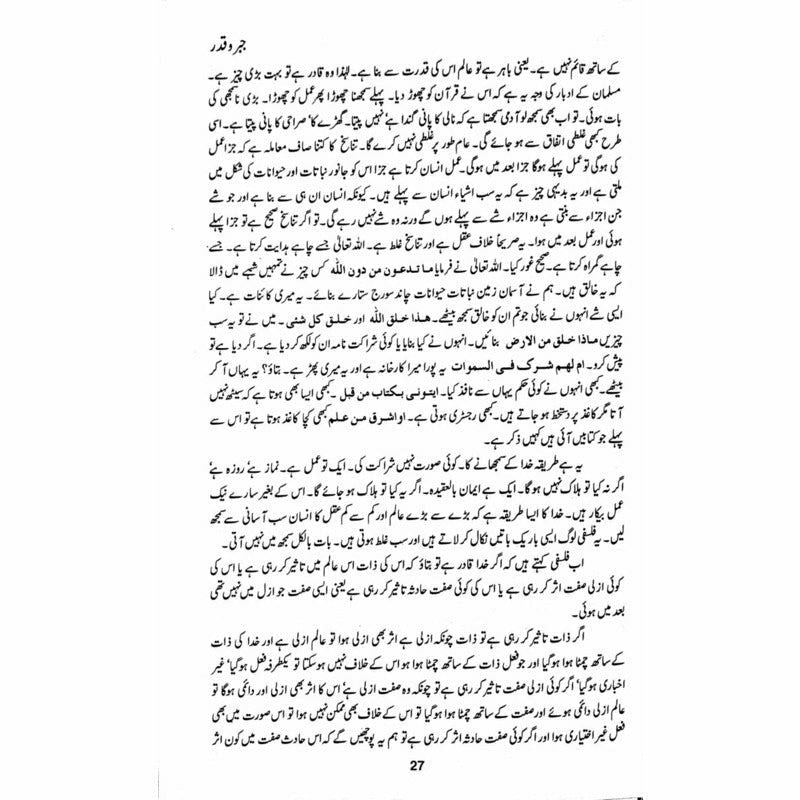 جبر و قدر
کے ساتھ قائم نہیں ہے۔ یعنی باہر ہے تو عالم اس کی قدرت سے بنا ہے۔ لہٰذا وہ قادر ہے تو بہت بڑی چیز ہے۔
مسلمان کے ادبار کی وجہ یہ ہے کہ اس نے قرآن کو چھوڑ دیا۔ پہلے سمجھنا چھوڑا پھر عمل کو چھوڑا۔ بڑی ناسمجھی کی
بات ہوئی۔ تو اب بھی سمجھ لو آدمی سمجھتا ہے کہ نالی کا پانی گندا ہے، نہیں پیتا۔ گھڑے کا، صراحی کا پانی پیتا ہے۔ اسی
طرح کبھی غلطی اتفاق سے ہو جائے گی۔ عام طور پر غلطی نہیں کرے گا۔ تناسخ کا کتنا صاف معاملہ ہے کہ جزا عمل
کی ہوگی تو عمل پہلے ہوگا جزا بعد میں ہوگی۔ عمل انسان کرتا ہے جزا اس کو جانور نباتات اور حیوانات کی شکل میں
ملتی ہے اور یہ بدیہی چیز ہے کہ یہ سب اشیاء انسان سے پہلے ہیں۔ کیونکہ انسان ان ہی سے بنا ہے اور جو شے
جن اجزاء سے بنتی ہے وہ اجزاء شے سے پہلے ہوں گے ورنہ وہ شے نہیں رہے گی۔ تو اگر تناسخ صحیح ہے تو جزا پہلے
ہوئی اور عمل بعد میں ہوا۔ یہ صریحاً خلاف عقل ہے اور تناسخ غلط ہے۔ اللہ تعالیٰ جسے چاہے ہدایت کرتا ہے۔ جسے
چاہے گمراہ کرتا ہے۔ صحیح غور کیا۔ اللہ تعالیٰ نے فرمایا ما تدعون من دون اللہ کس چیز نے تمہیں شبہے میں ڈالا
کہ یہ خالق ہیں۔ ہم نے آسمان زمین نباتات حیوانات چاند سورج ستارے بنائے۔ یہ میری کائنات ہے۔ کیا
ایسی شے انہوں نے بنائی جو تم ان کو خالق سمجھ بیٹھے۔ هذا خلق الله اور خلق کل شئی ۔ میں نے تو یہ سب
چیزیں ماذا خلق من الارض بنائیں۔ انہوں نے کیا بنایا یا کوئی شراکت نامہ ان کو لکھ کر دیا ہے۔ اگر دیا ہے تو
پیش کرو۔ ام لهم شرک فی السموات یہ پورا میرا کارخانہ ہے اور یہ میری پھڑ ہے۔ بتاؤ؟ یہ یہاں آ کر
بیٹھے۔ کبھی انہوں نے کوئی حکم یہاں سے نافذ کیا۔ ایتونی بکتاب من قبل ۔ کبھی ایسا بھی ہوتا ہے کہ سیٹھ نہیں
آتا مگر کاغذ پر دستخط ہو جاتے ہیں۔ کبھی رجسٹری ہوتی ہے۔ او اشرق من علم کبھی کچا کاغذ ہوتا ہے تو اس سے
پہلے جو کتابیں آئی ہیں کہیں ذکر ہے۔
یہ ہے طریقہ خدا کے سمجھانے کا۔ کوئی صورت نہیں شراکت کی۔ ایک تو عمل ہے۔ نماز ہے، روزہ ہے،
اگر نہ کیا تو ہلاک نہیں ہوگا۔ ایک ہے ایمان بالعقیدہ۔ اگر یہ کیا تو ہلاک ہو جائے گا۔ اس کے بغیر سارے نیک
عمل بیکار ہیں۔ خدا کا ایسا طریقہ ہے کہ بڑے سے بڑے عالم اور کم سے کم عقل کا انسان سب آسانی سے سمجھ
لیں۔ یہ فلسفی لوگ ایسی باریک باتیں نکال کر لاتے ہیں اور سب غلط ہوتی ہیں۔ بات بالکل سمجھ میں نہیں آتی۔
اب فلسفی کہتے ہیں کہ اگر خدا قادر ہے تو بتاؤ کہ اس کی ذات اس عالم میں تاثیر کر رہی ہے یا اس کی
کوئی ازلی صفت اثر کر رہی ہے یا اس کی کوئی صفت حادثہ تاثیر کر رہی ہے یعنی ایسی صفت جو ازل میں نہیں تھی
بعد میں ہوئی۔
اگر ذات تاثیر کر رہی ہے تو ذات چونکہ ازلی ہے اثر بھی ازلی ہوا تو عالم ازلی ہے اور خدا کی ذات
کے ساتھ چمٹا ہوا ہوگیا اور جو فعل ذات کے ساتھ چمٹا ہوا ہو اس کے خلاف نہیں ہو سکتا تو یکطرفہ فعل ہوگیا، غیر
اخباری ہوگیا، اگر کوئی ازلی صفت تاثیر کر رہی ہے تو چونکہ وہ صفت ازلی ہے، اس کا اثر بھی ازلی اور دائمی ہوگا تو
عالم ازلی دائمی ہوئے اور صفت کے ساتھ چمٹا ہوا ہوگیا تو اس کے خلاف بھی ممکن نہیں ہوا تو اس صورت میں بھی
فعل غیر اختیاری ہوا اور اگر کوئی صفت حادثہ اثر کر رہی ہے تو ہم یہ پوچھیں گے کہ اس حادث صفت میں کون اثر
27